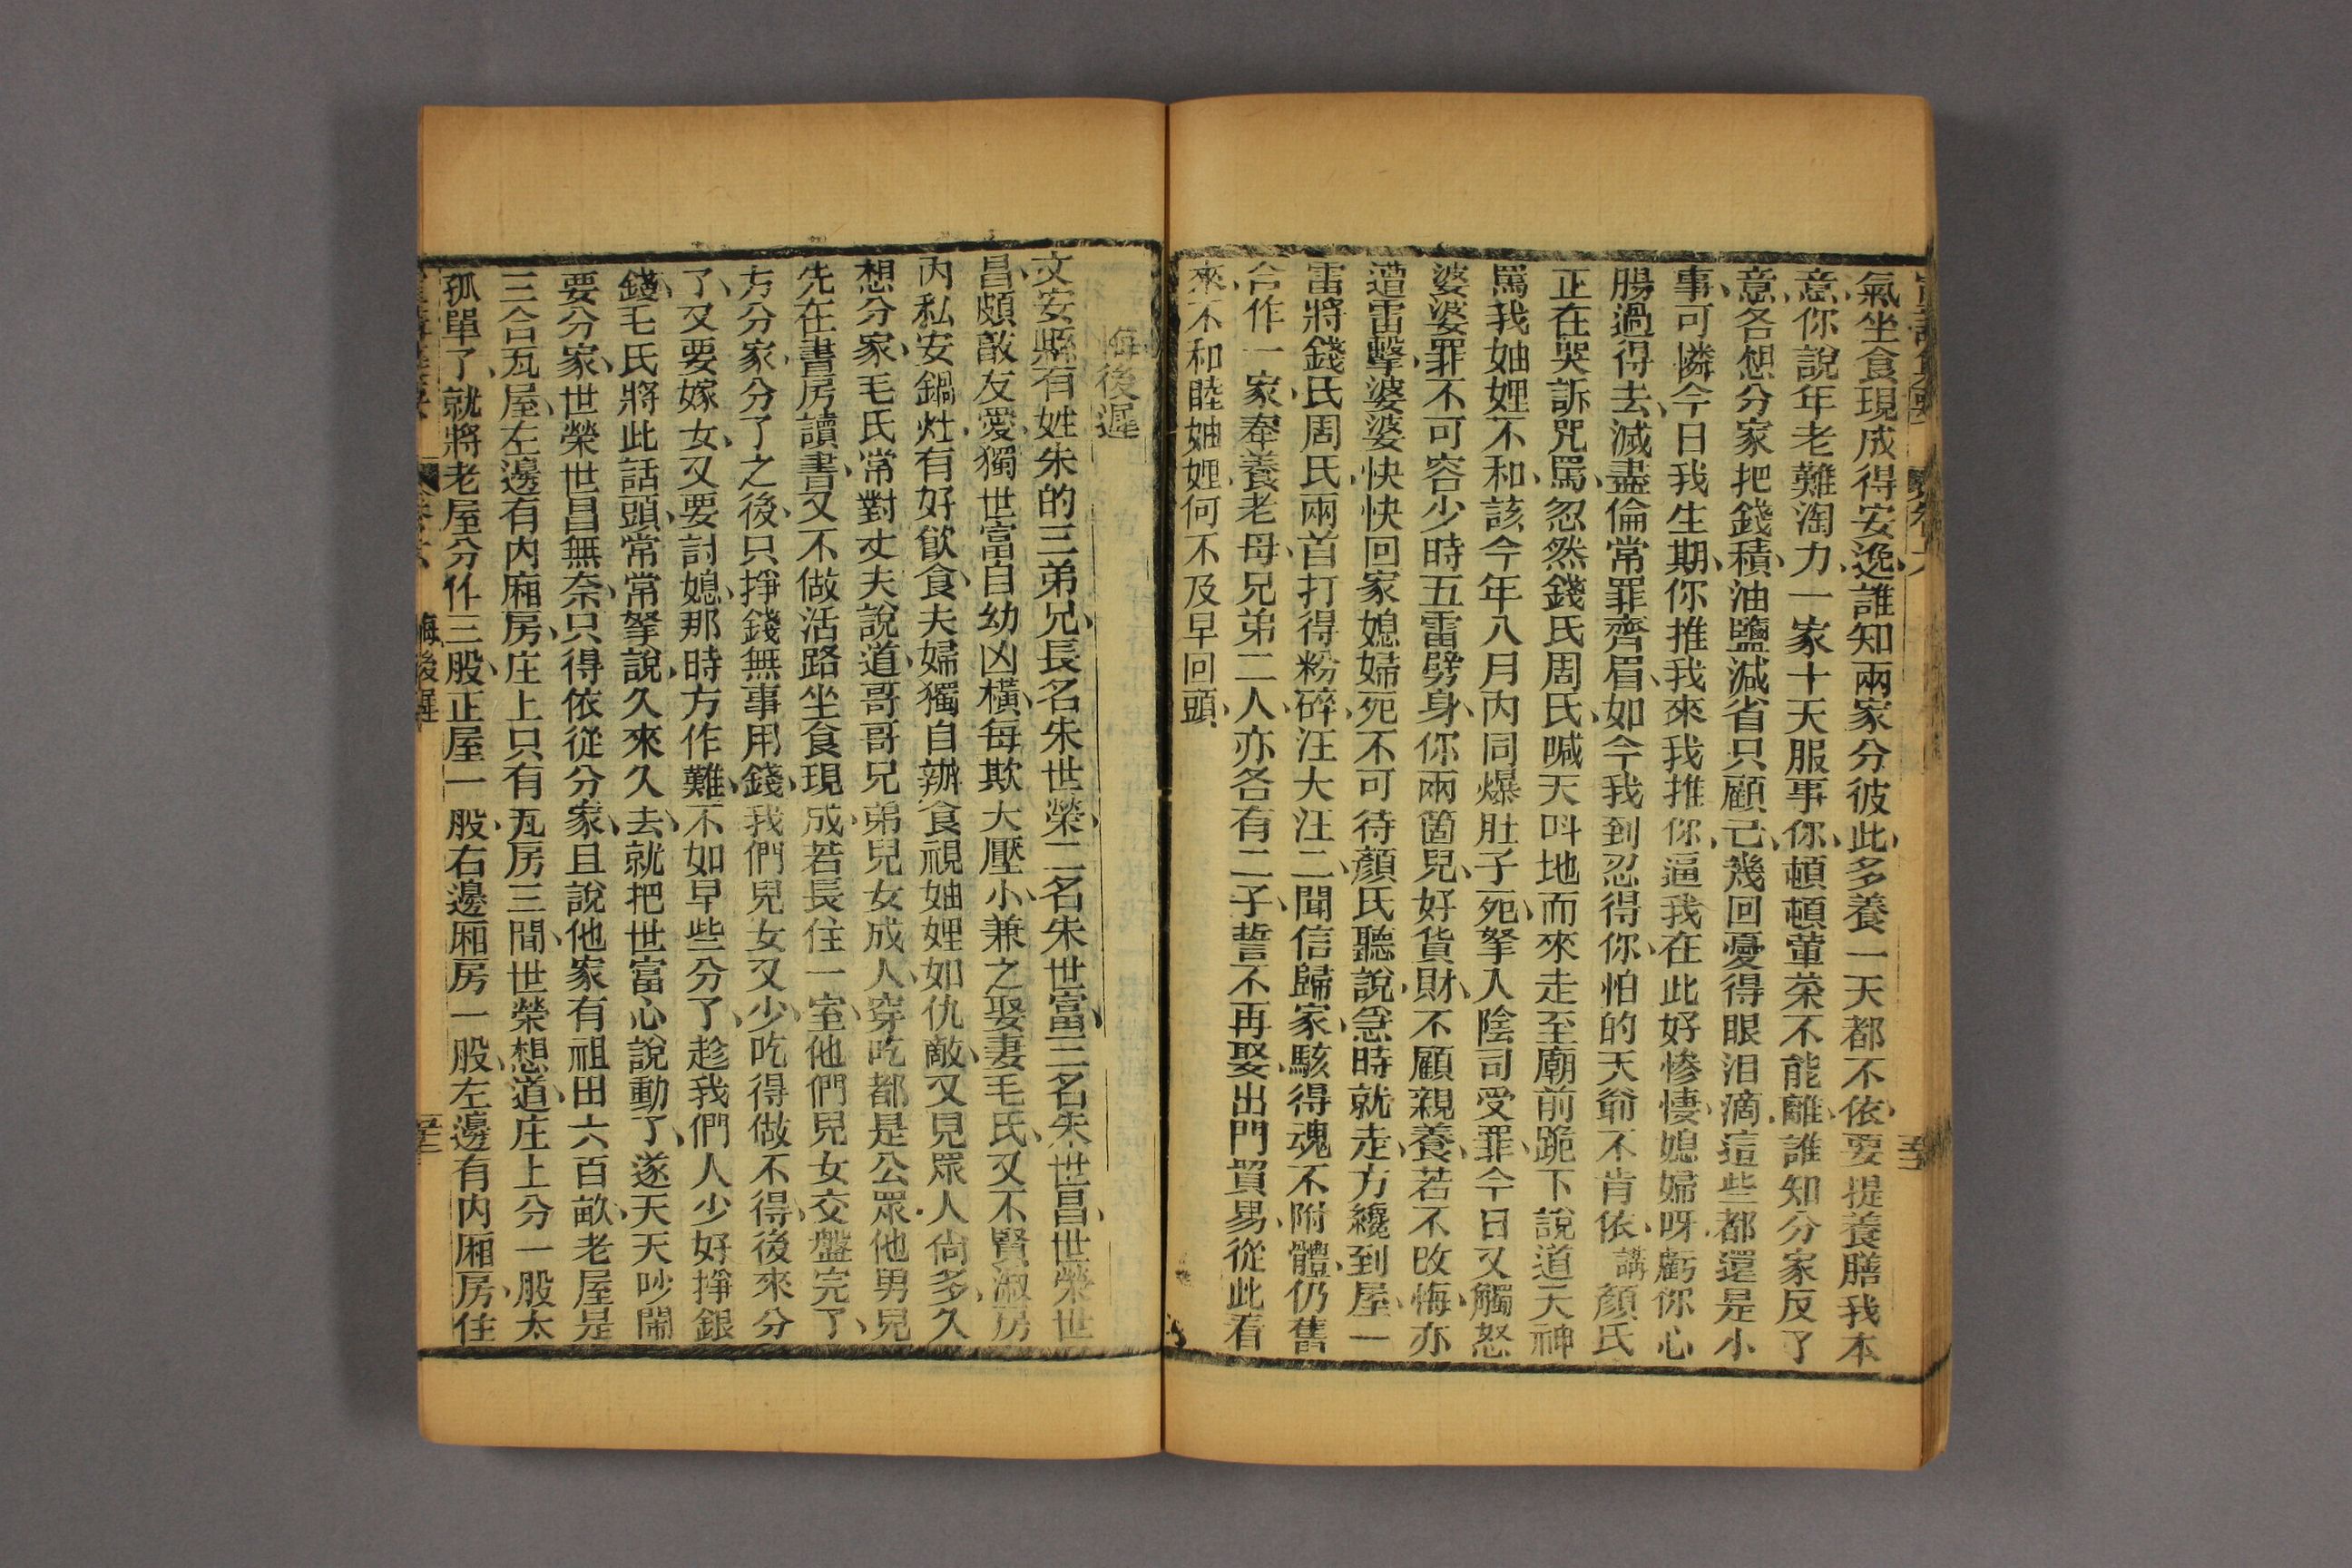 氣坐食現成得安逸誰知兩家分彼此多養一天都不依要提養膳我本
意你說年老難淘力一家十天服事你頓頓葷菜不能離誰知分家反了
意各想分家把錢積油鹽減省只顧己幾回憂得眼泪滴這些都還是小
事可憐今日我生期你推我來我推你逼我在此好慘悽媳婦呀虧你心
腸過得去滅盡倫常罪齊眉如今我到忍得你怕的天爺不肯依講顏氏
正在哭訴咒罵忽然錢氏周氏喊天呌地而來走至廟前跪下說道天神
罵我妯娌不和該今年八月內同爆肚子死拏入陰司受罪今日又觸怒
婆婆罪不可容少時五雷劈身你兩箇兒好貨財不顧親養若不改悔亦
遭雷擊婆婆快快回家媳婦死不可待顏氏聽說急時就走方纔到屋一
雷將錢氏周氏兩首打得粉碎汪大汪二聞信歸家駭得魂不附體仍舊
合作一家奉養老母兄弟二人亦各有二子誓不再娶出門貿易從此看
來不和睦妯娌何不及早回頭
悔後遲
文安縣有姓朱的三弟兄長名朱世榮二名朱世富三名朱世昌世榮世
昌頗敵友愛獨世富自幼凶橫每欺大壓小兼之娶妻毛氏又不賢淑房
內私安鍋灶有好飮食夫婦獨自辦食視妯娌如仇敵又見眾人尙多久
想分家毛氏常對丈夫說道哥哥兄弟兒女成人穿吃都是公眾他男兒
先在書房讀書又不做活路坐食現成若長住一室他們兒女交盤完了
方分家分了之後只掙錢無事用錢我們兒女又少吃得做不得後來分
了又要嫁女又要討媳那時方作難不如早些分了趁我們人少好掙銀
錢毛氏將此話頭常常拏說久來久去就把世富心說動了遂天天吵鬧
要分家世榮世昌無奈只得依從分家且說他家有祖田六百畝老屋是
三合瓦屋左邊有內廂房庄上只有瓦房三間世榮想道庄上分一股太
孤單了就將老屋分作三股正屋一股右邊廂房一股左邊有內廂房住
悔後遲